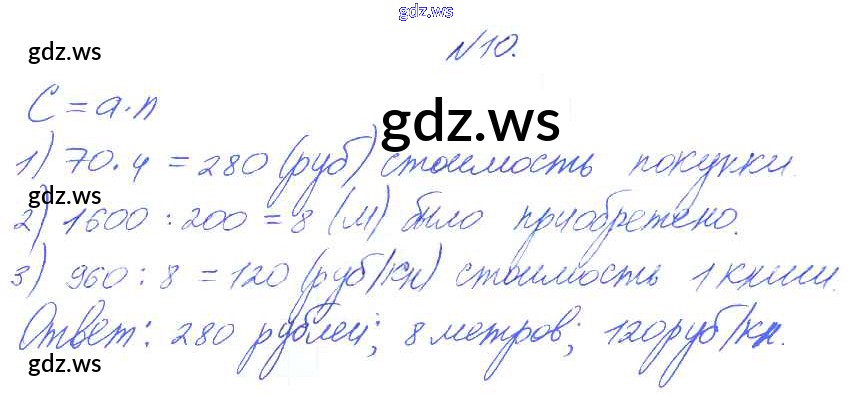 gdz.ws
№10.
gdz.ws
C = a·n
gdz.ws
1) 70·4 = 280 (руб) стоимость покупки.
gdz.ws
2) 1600 : 200 = 8 (м) было приобретено.
3) 960 : 8 = 120 (руб/кн) стоимость 1 книги.
Ответ: 280 рублей; 8 метров; 120 руб/кн.
gdz.ws